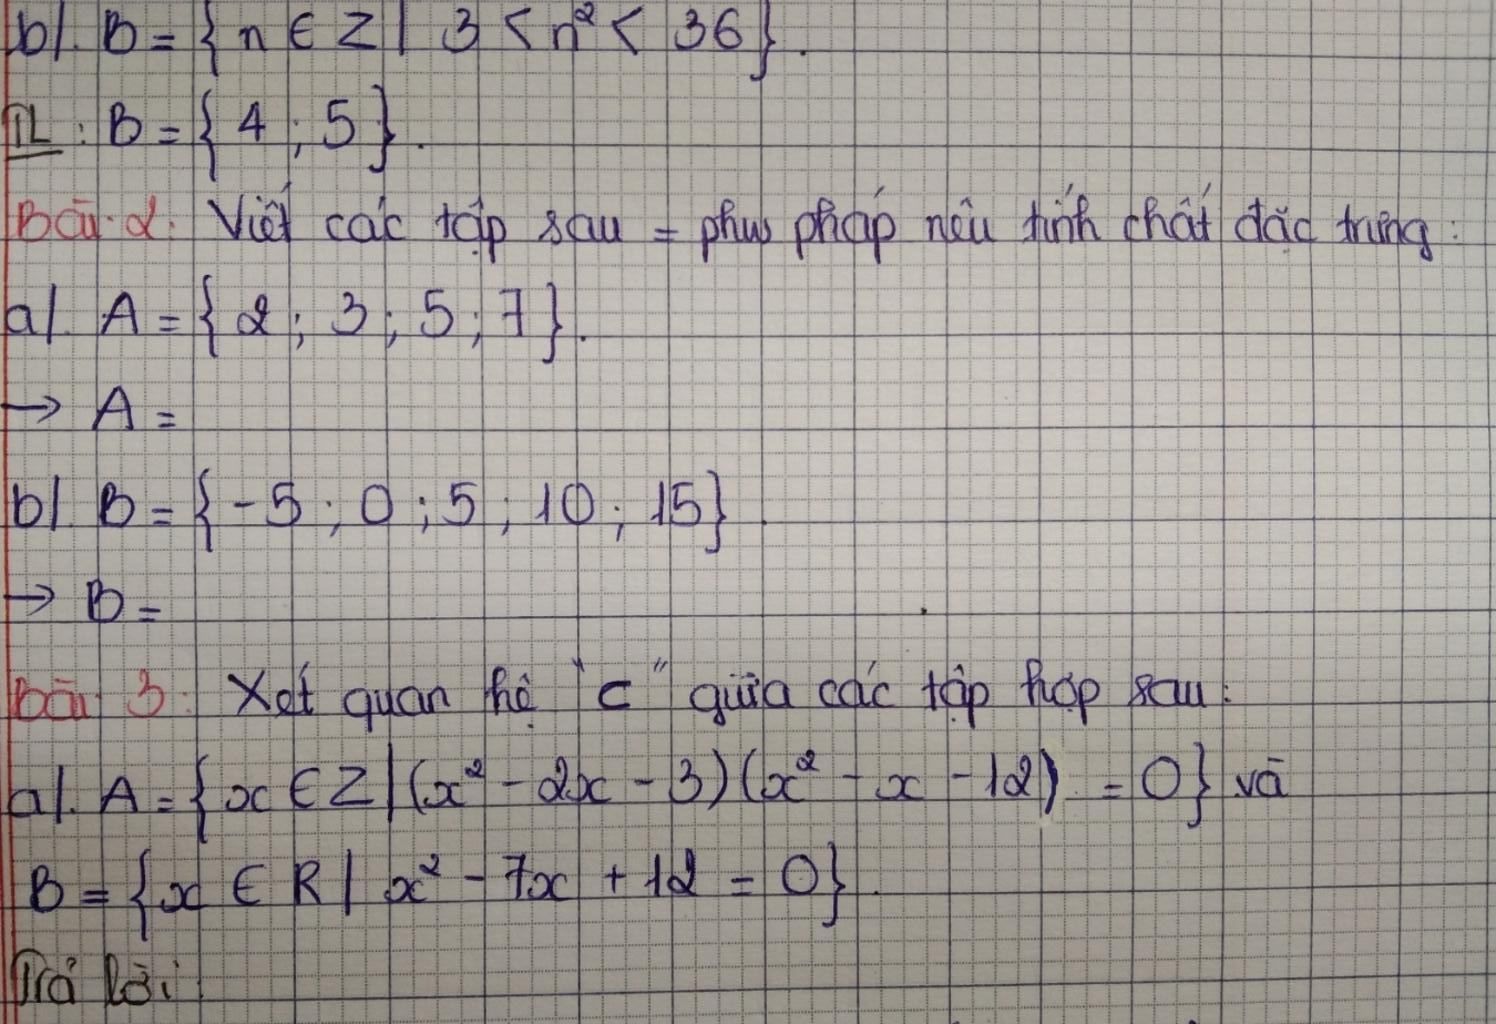 b/. B = { n ∈ Z | 3 < n² < 36 }.
TL : B = { 4 ; 5 }.
Bài 2: Viết các tập sau = phw pháp nêu tính chất đặc trưng:
a/. A = { 2 ; 3 ; 5 ; 7 }.
→ A =
b/. B = { -5 ; 0 ; 5 ; 10 ; 15 }.
→ B =
Bài 3: Xét quan hệ "⊂" giữa các tập hợp sau:
a/. A = { x ∈ Z | (x² - 2x - 3)(x² - x - 12) = 0 } và
B = { x ∈ R | x² - 7x + 12 = 0 }.
Trả lời: